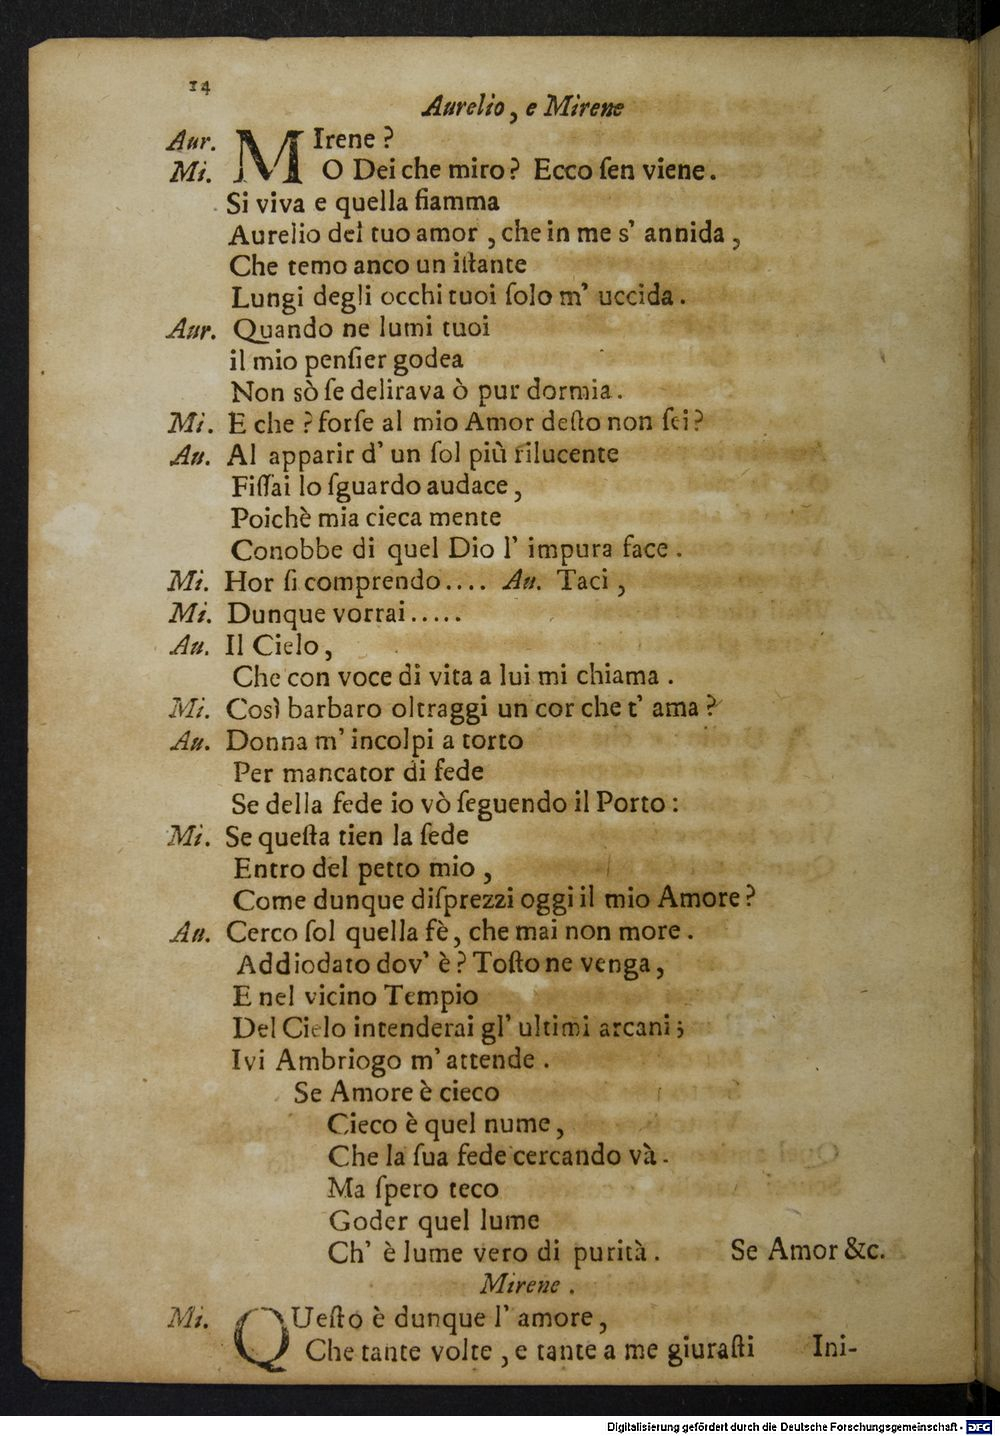 14
Aurelio, e Mirene
Aur. MIrene?
Mi. O Dei che miro? Ecco ſen viene.
Si viva e quella fiamma
Aurelio del tuo amor, che in me s' annida,
Che temo anco un iſtante
Lungi degli occhi tuoi ſolo m' uccida.
Aur. Quando ne lumi tuoi
il mio penſier godea
Non sò ſe delirava ò pur dormia.
Mi. E che? forſe al mio Amor deſto non ſei?
Au. Al apparir d' un ſol più rilucente
Fiſſai lo ſguardo audace,
Poichè mia cieca mente
Conobbe di quel Dio l' impura face.
Mi. Hor ſi comprendo.... Au. Taci,
Mi. Dunque vorrai.....
Au. Il Cielo,
Che con voce di vita a lui mi chiama.
Mi. Così barbaro oltraggi un cor che t' ama?
Au. Donna m' incolpi a torto
Per mancator di fede
Se della fede io vò ſeguendo il Porto:
Mi. Se queſta tien la ſede
Entro del petto mio,
Come dunque diſprezzi oggi il mio Amore?
Au. Cerco ſol quella fè, che mai non more.
Addiodato dov' è? Toſto ne venga,
E nel vicino Tempio
Del Cielo intenderai gl' ultimi arcani;
Ivi Ambriogo m' attende.
Se Amore è cieco
Cieco è quel nume,
Che la ſua fede cercando và.
Ma ſpero teco
Goder quel lume
Ch' è lume vero di purità. Se Amor &c.
Mirene.
Mi. QUeſto è dunque l' amore,
Che tante volte, e tante a me giuraſti
Ini-
Digitalisierung gefördert durch die Deutsche Forschungsgemeinschaft - DFG